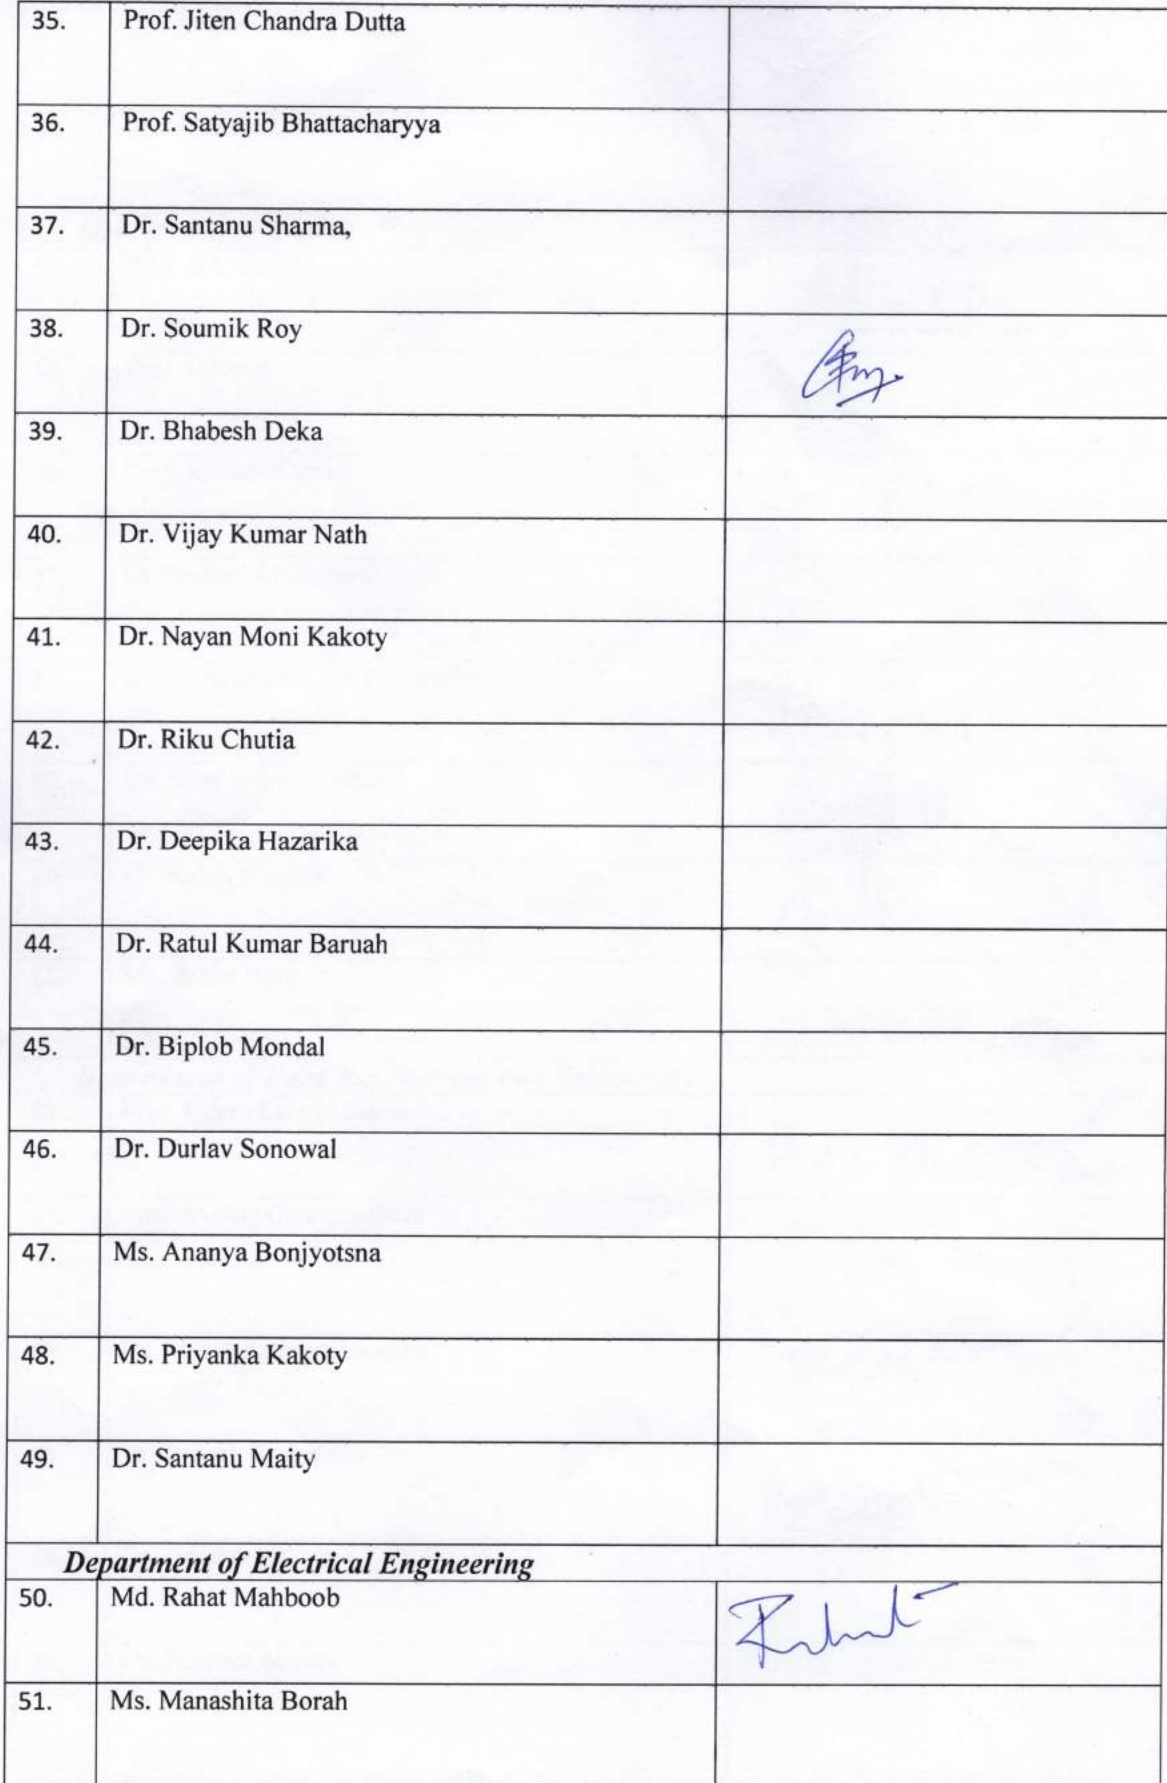 35. Prof. Jiten Chandra Dutta
36. Prof. Satyajib Bhattacharyya
37. Dr. Santanu Sharma,
38. Dr. Soumik Roy
39. Dr. Bhabesh Deka
40. Dr. Vijay Kumar Nath
41. Dr. Nayan Moni Kakoty
42. Dr. Riku Chutia
43. Dr. Deepika Hazarika
44. Dr. Ratul Kumar Baruah
45. Dr. Biplob Mondal
46. Dr. Durlav Sonowal
47. Ms. Ananya Bonjyotsna
48. Ms. Priyanka Kakoty
49. Dr. Santanu Maity
Department of Electrical Engineering
50. Md. Rahat Mahboob Rahat
51. Ms. Manashita Borah